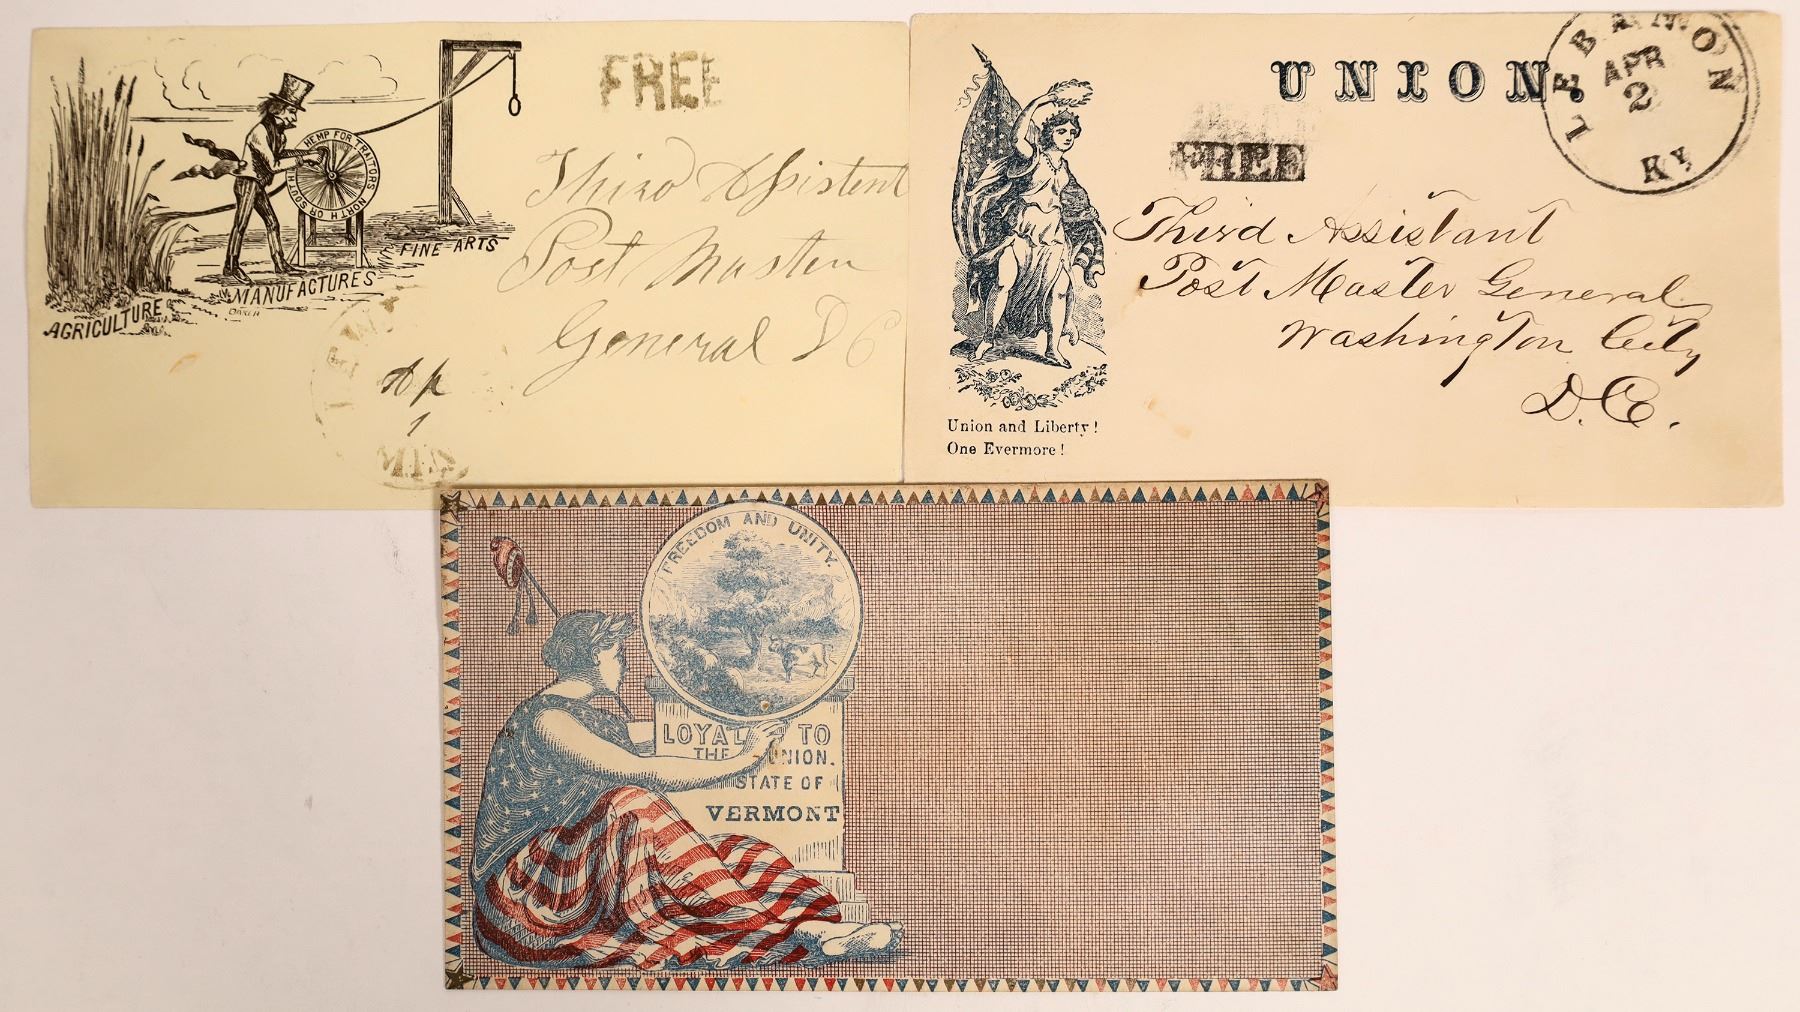 FREE
HEMP FOR TRAITORS NORTH OR SOUTH
AGRICULTURE
MANUFACTURES
FINE ARTS
Third Assistent
Post Masten
General D C
Ap
1
MIN
UNION.
FREE
LEBANON
APR
2
KY
Third Assistant
Post Master General
Washington City
D.C.
Union and Liberty!
One Evermore!
FREEDOM AND UNITY.
LOYAL TO
THE UNION.
STATE OF
VERMONT